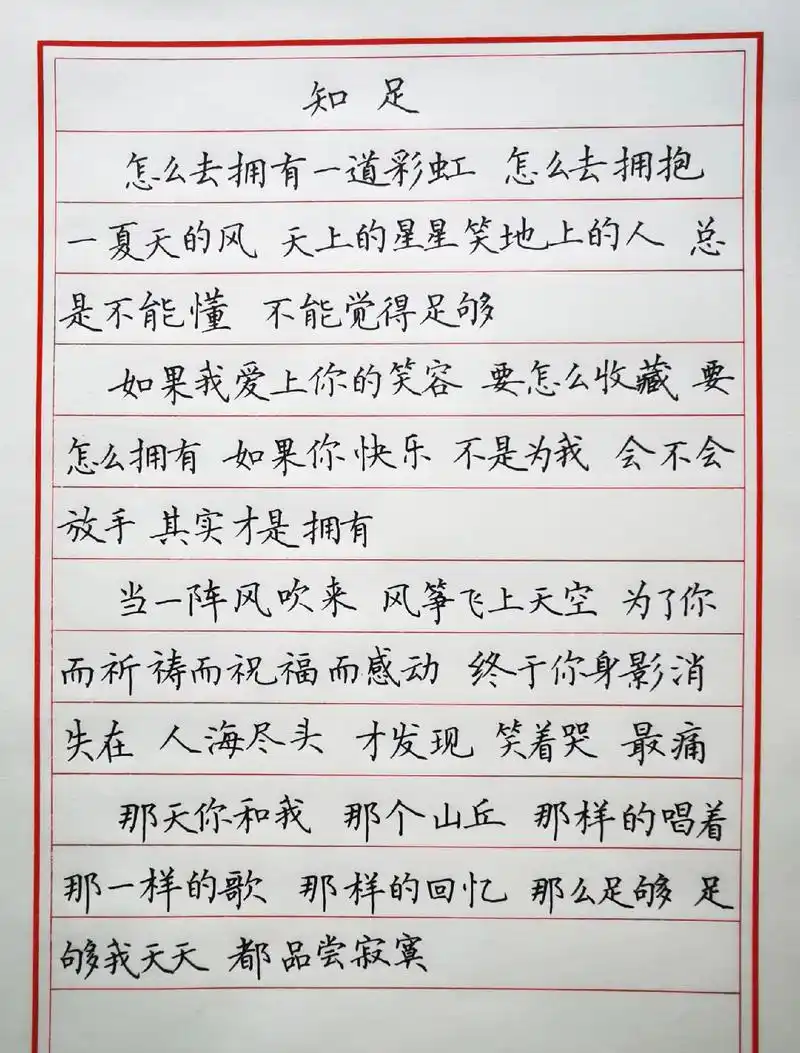 知足
怎么去拥有一道彩虹 怎么去拥抱
一夏天的风 天上的星星笑地上的人 总
是不能懂 不能觉得足够
如果我爱上你的笑容 要怎么收藏 要
怎么拥有 如果你快乐 不是为我 会不会
放手 其实才是拥有
当一阵风吹来 风筝飞上天空 为了你
而祈祷而祝福而感动 终于你身影消
失在 人海尽头 才发现 笑着哭 最痛
那天你和我 那个山丘 那样的唱着
那一样的歌 那样的回忆 那么足够 足
够我天天 都品尝寂寞